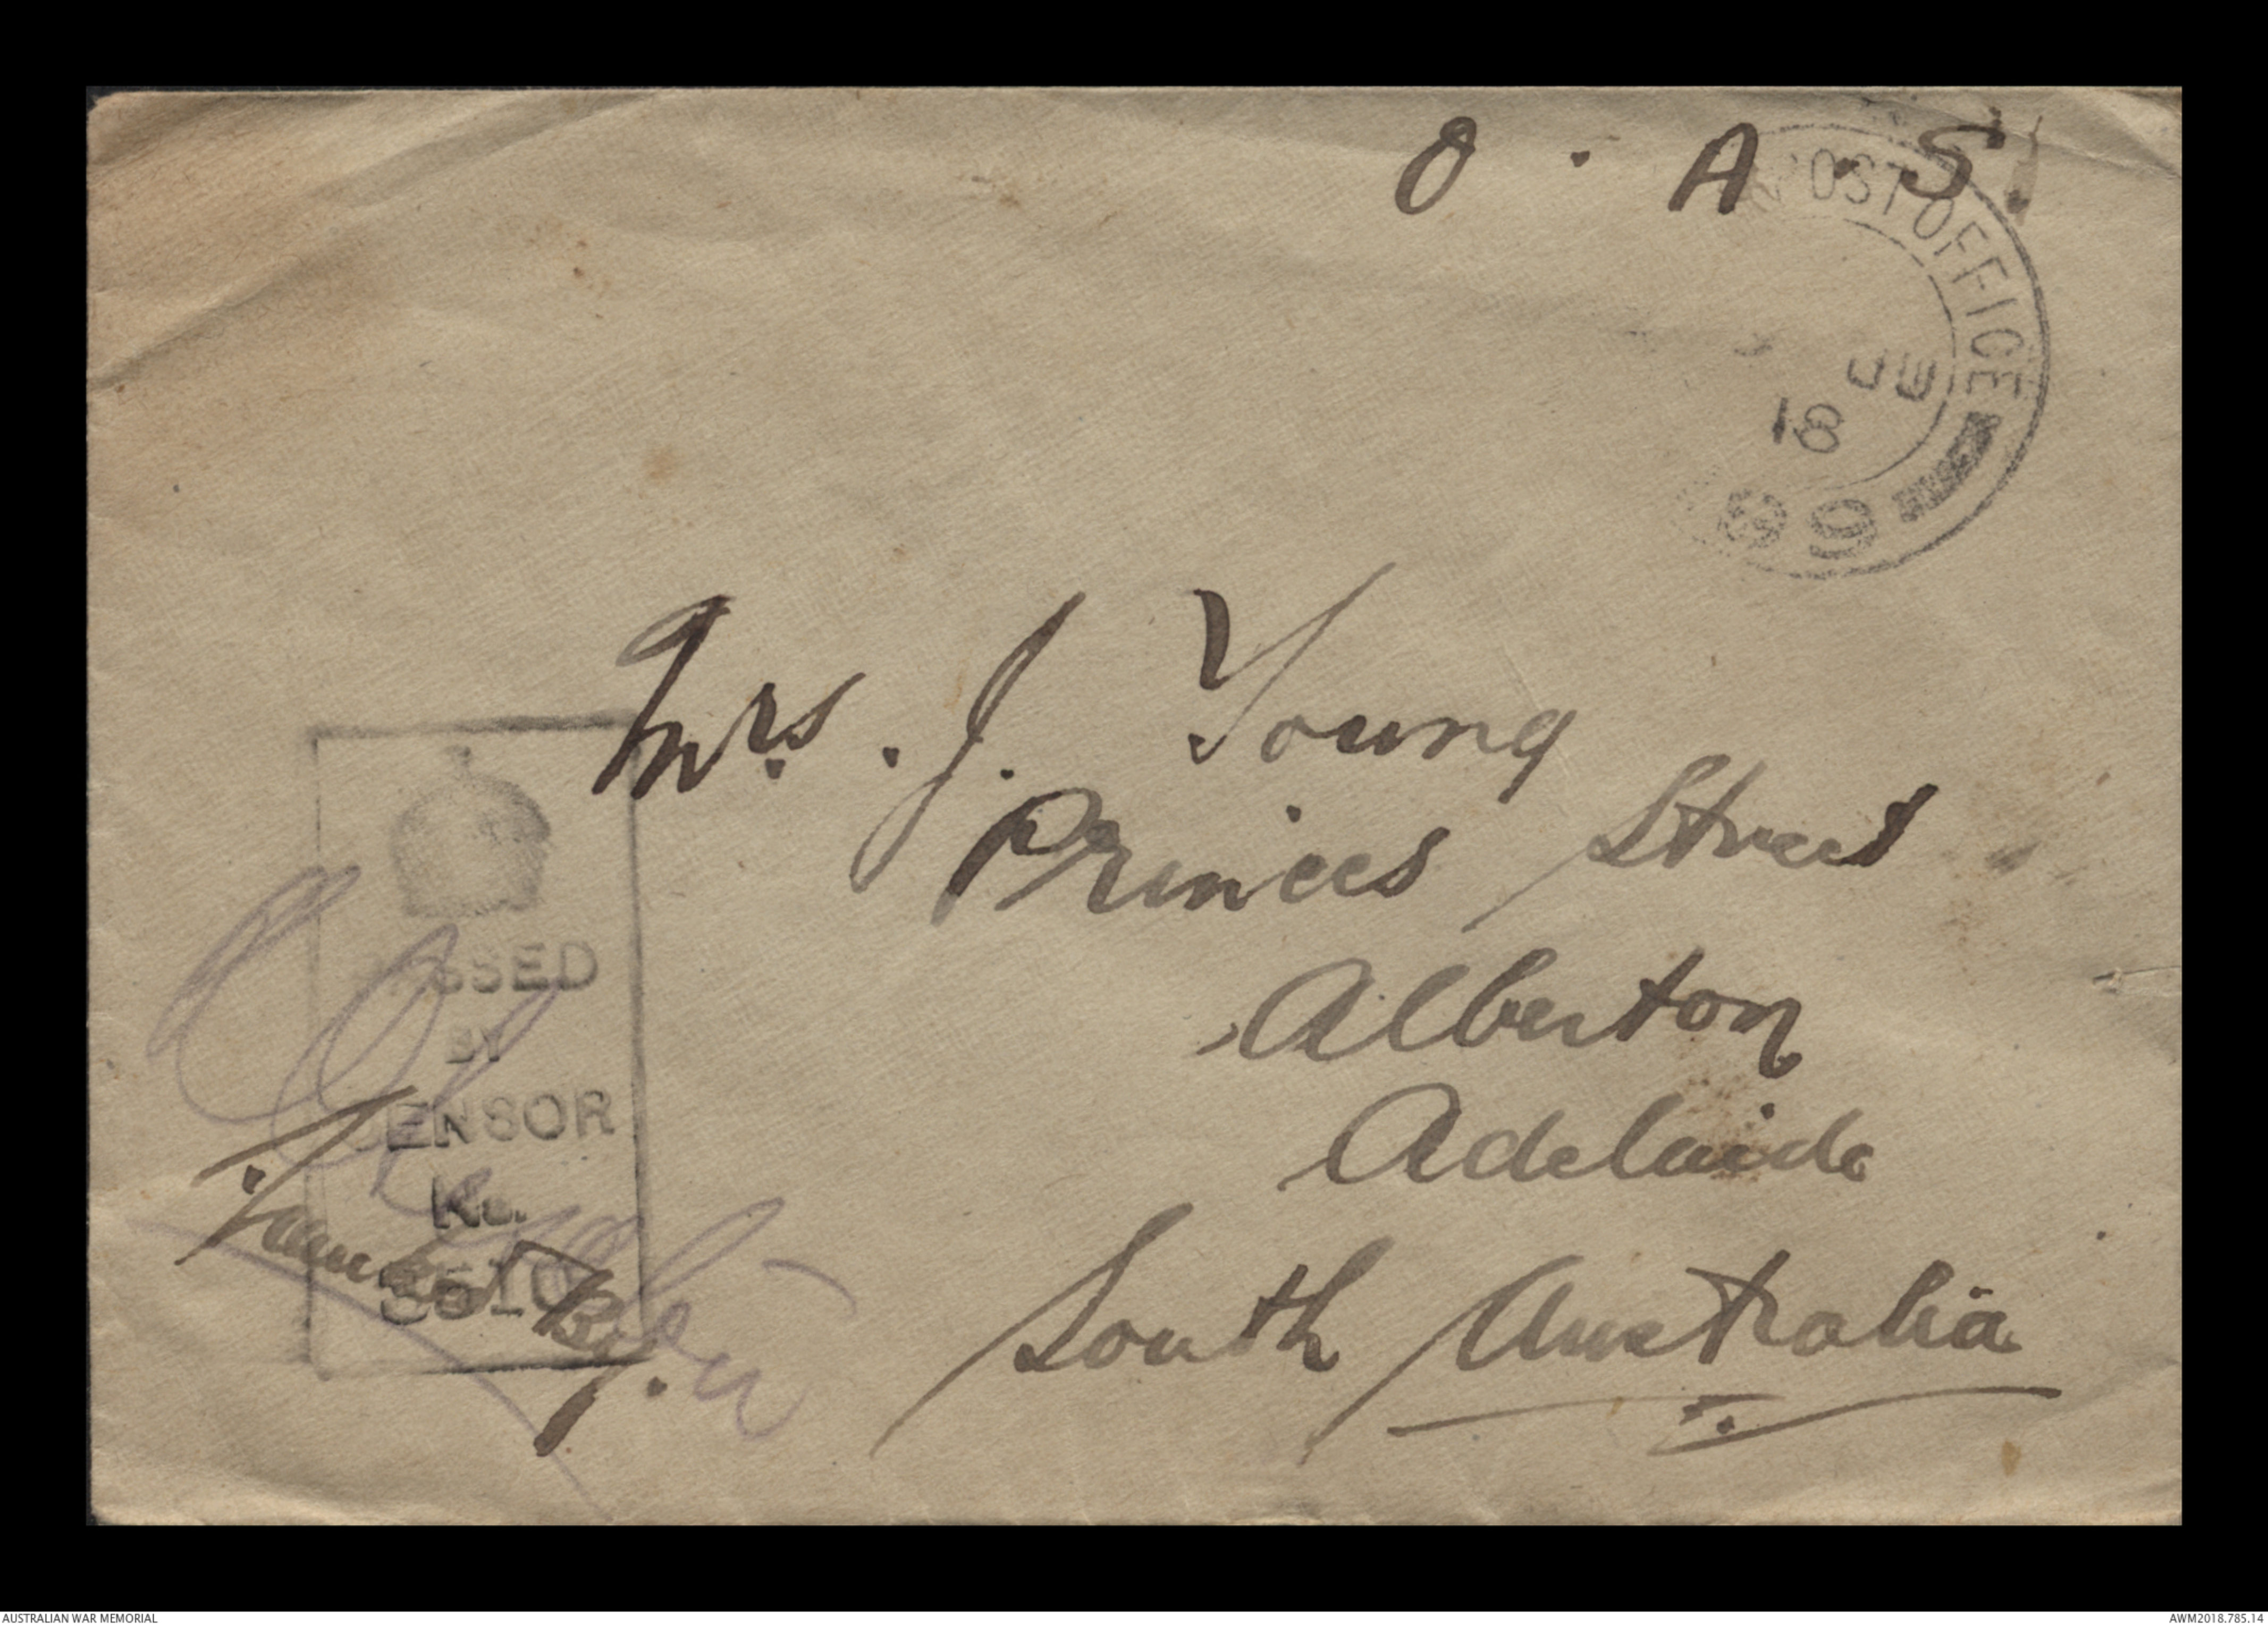 O . A . S.
POST OFFICE
JU
18
Mrs. J. Young
Princes Street
Alberton
Adelaide
South Australia
PASSED
BY
CENSOR
No.
AUSTRALIAN WAR MEMORIAL
AWM2018.785.14